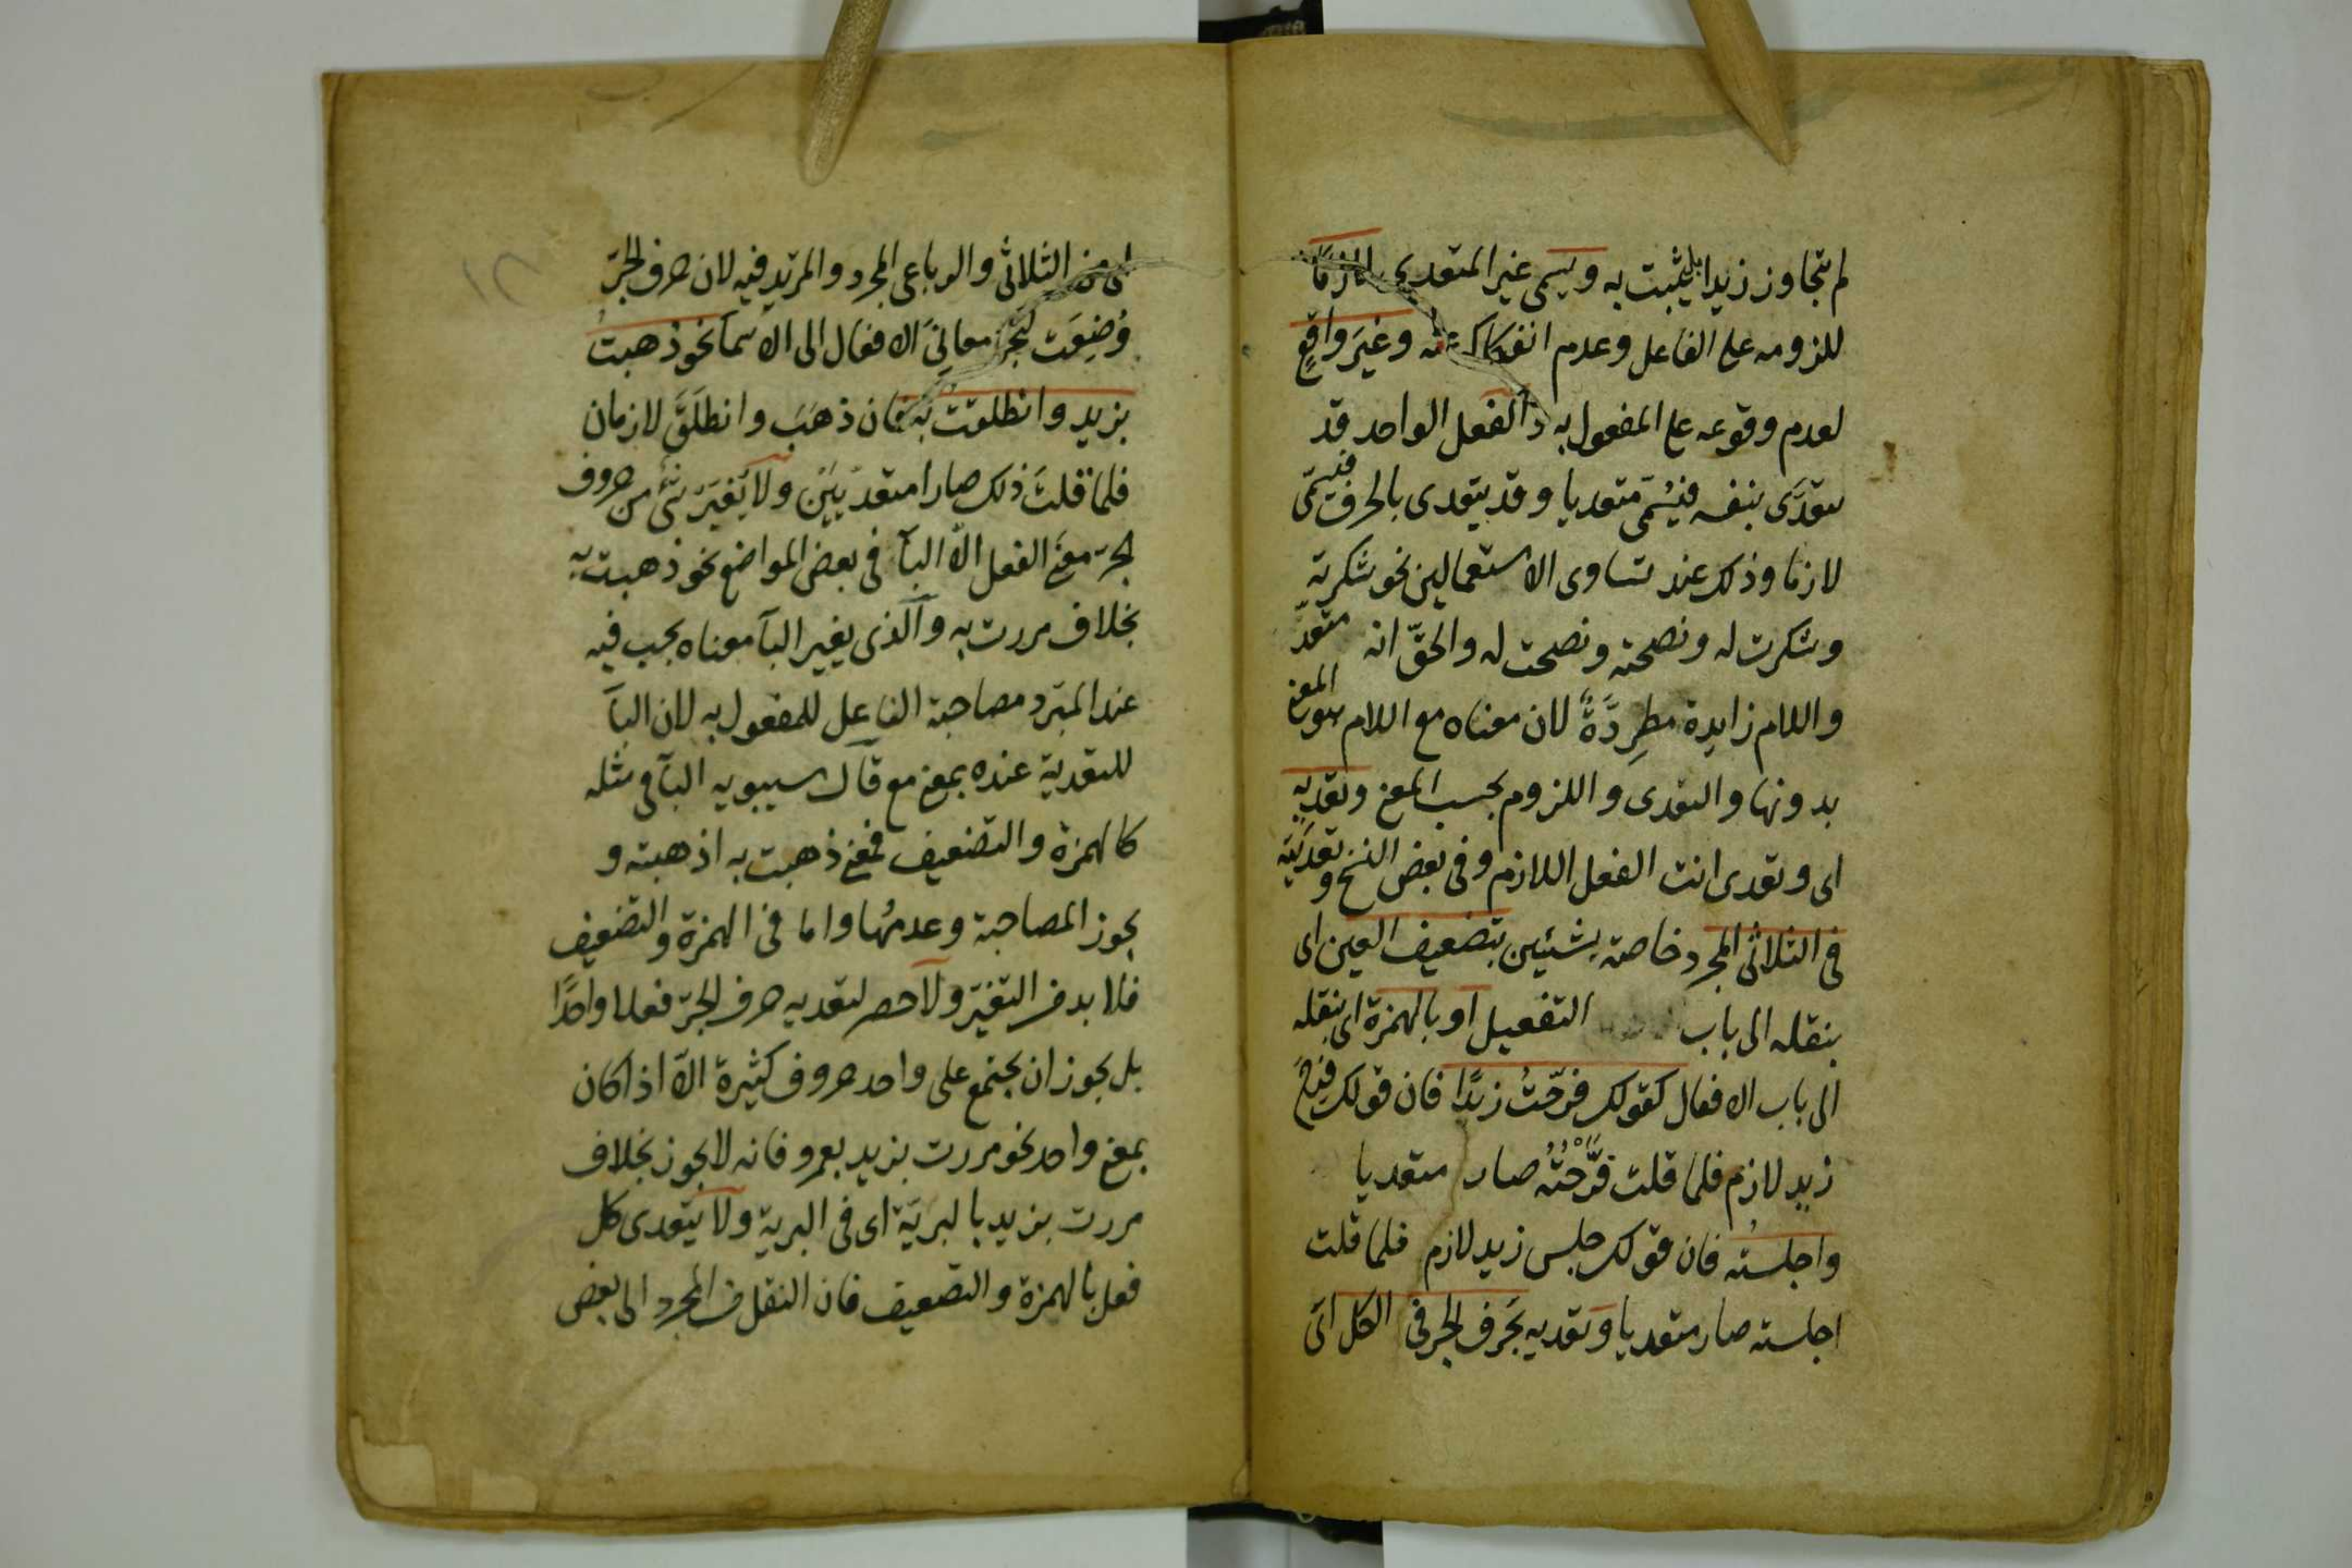 لم يتجاوز زيدا بل يثبت به ويسمى غير المتعدى لازمًا
للزومه على الفاعل وعدم انفكاكه عنه وغيرَ واقعٍ
لعدم وقوعه على المفعول به والفعل الواحد قد
يتعدّى بنفسه فيُسمّى متعديا وقد يتعدى بالحرف فيسمّى
لازما وذلك عند تساوى الاستعمالين نحو شكرته
وشكرت له ونصحته ونصحت له والحقّ انه متعدّ
واللام زايدة مطردَّةٌ لان معناه مع اللام هو المعنى
بدونها والتعدى واللزوم بحسب المعنى وتعديه
اى وتعدى انت الفعل اللازم وفى بعض النسخ وتعديَته
فى الثلاثى المجرد خاصة بشيئين بتضعيف العين اى
بنقله الى باب التفعيل او بالهمزة اى بنقله
الى باب الافعال كقولك فرّحتُ زيدًا فان قولك فرح
زيد لازم فلما قلت فَرَّحْتُهُ صار متعديا
واجلستُه فان قولك جلس زيد لازم فلما قلت
اجلسته صار متعديا وتعديه بحَرف الجر فى الكل اى
من الثلاثى والرباعى المجرد والمزيد فيه لان حرف الجرّ
وُضِعَت لتجرّ معانىَ الافعال الى الاسمآ نحو ذهبتُ
بزيد وانطلقتُ به فان ذهَبَ وانطلَقَ لازمان
فلمّا قلتَ ذلك صارا متعديَيْن ولا يُغيّر شئ من حروف
الجرّ معنى الفعل الّا البآ فى بعض المواضع نحو ذهبت به
بخلاف مررت به والذى يغير البآ معناه يجب فيه
عند المبرّد مصاحبة الفاعل للمفعول به لان البآ
للتعدية عنده بمعنى مع قال سيبويه البآ فى مثله
كالهمزة والتضعيف فمعنى ذهبت به اذهبته و
يجوز المصاحبة وعدمُها واما فى الهمزة والتضعيف
فلا بد من التغيّر ولا حصر لتعديه حرف الجرّ فعلا واحدًا
بل يجوز ان يجتمع على واحد حروف كثيرة الّا اذا كان
بمعنى واحد نحو مررت بزيد بعمرو فانه لا يجوز بخلاف
مررت بزيد بالبريّة اى فى البرية ولا يتعدى كل
فعل بالهمزة والتضعيف فان النقل من المجرد الى بعض